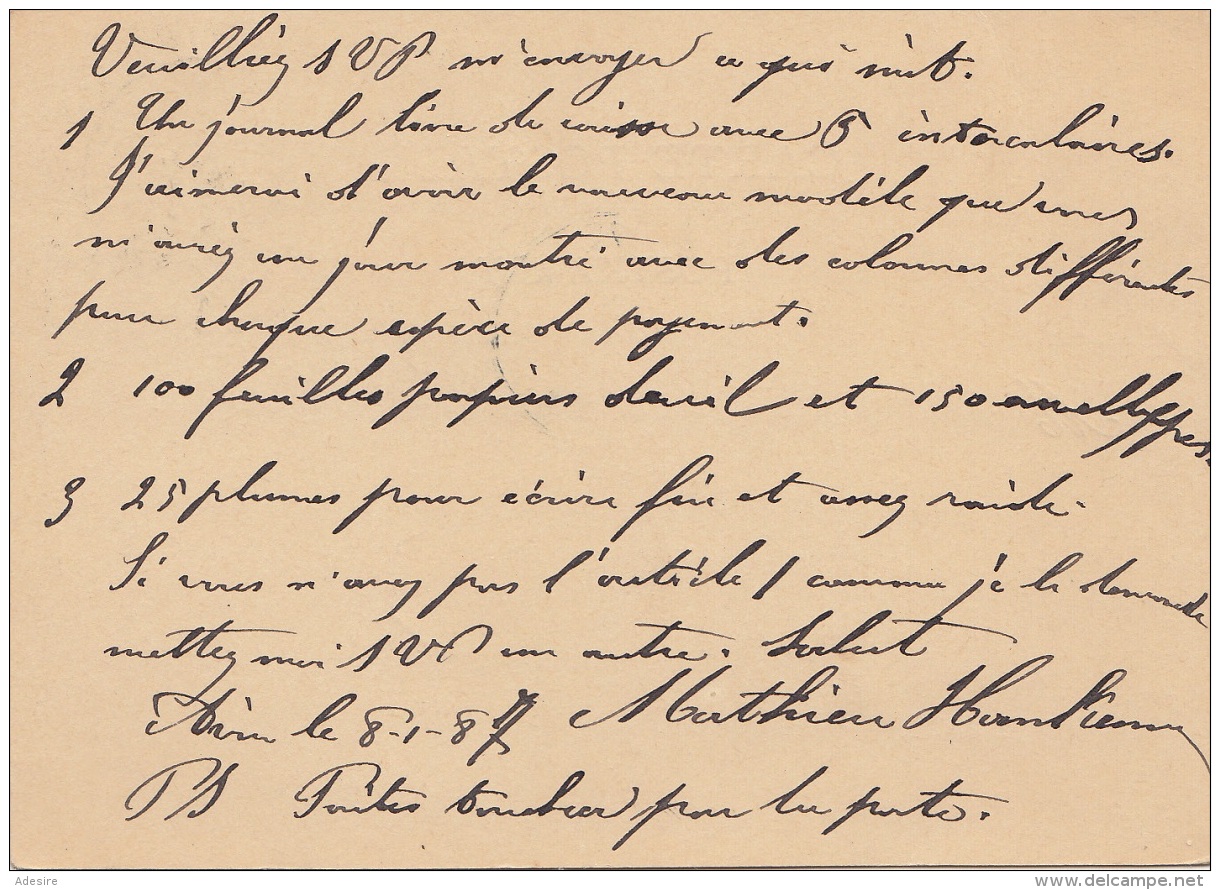 Veuilliéz S V P m'envoyer ce qui suit.
1 Un journal livre de caisse avec 6 intercalaires.
J'aimerai d'avoir le nouveau modèle que vous
m'avéz un jour montré avec des colonnes différentes
pour chaque espèce de payement.
2 100 feuilles papiers deuil et 150 anvelloppes.
3 25 plumes pour écrire fin et assez raide.
Si vous n'avez pas l'article 1 comme je le demande
mettez moi S V P un autre. Salut
le 8-1-87 Mathieu
P S Faites toucher par la poste.
Adesire
delcampe.net